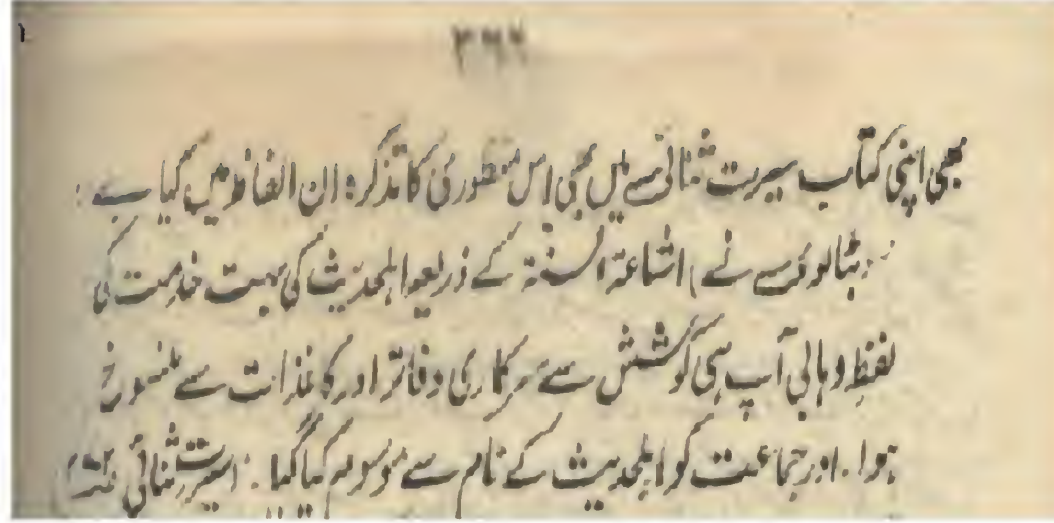 ۳۶۲
بھی اپنی کتاب سیرت ثنائی میں بھی اس منظوری کا تذکرہ ان الفاظ میں کیا ہے :
بٹالوی نے ) اشاعۃ السنۃ کے ذریعہ اہلحدیث کی بہت خدمت کی
لفظ وہابی آپ ہی کوشش سے سرکاری دفاتر اور کاغذات سے منسوخ
ہوا . اور جماعت کو اہلحدیث کے نام سے موسوم کیا گیا . سیرت ثنائی